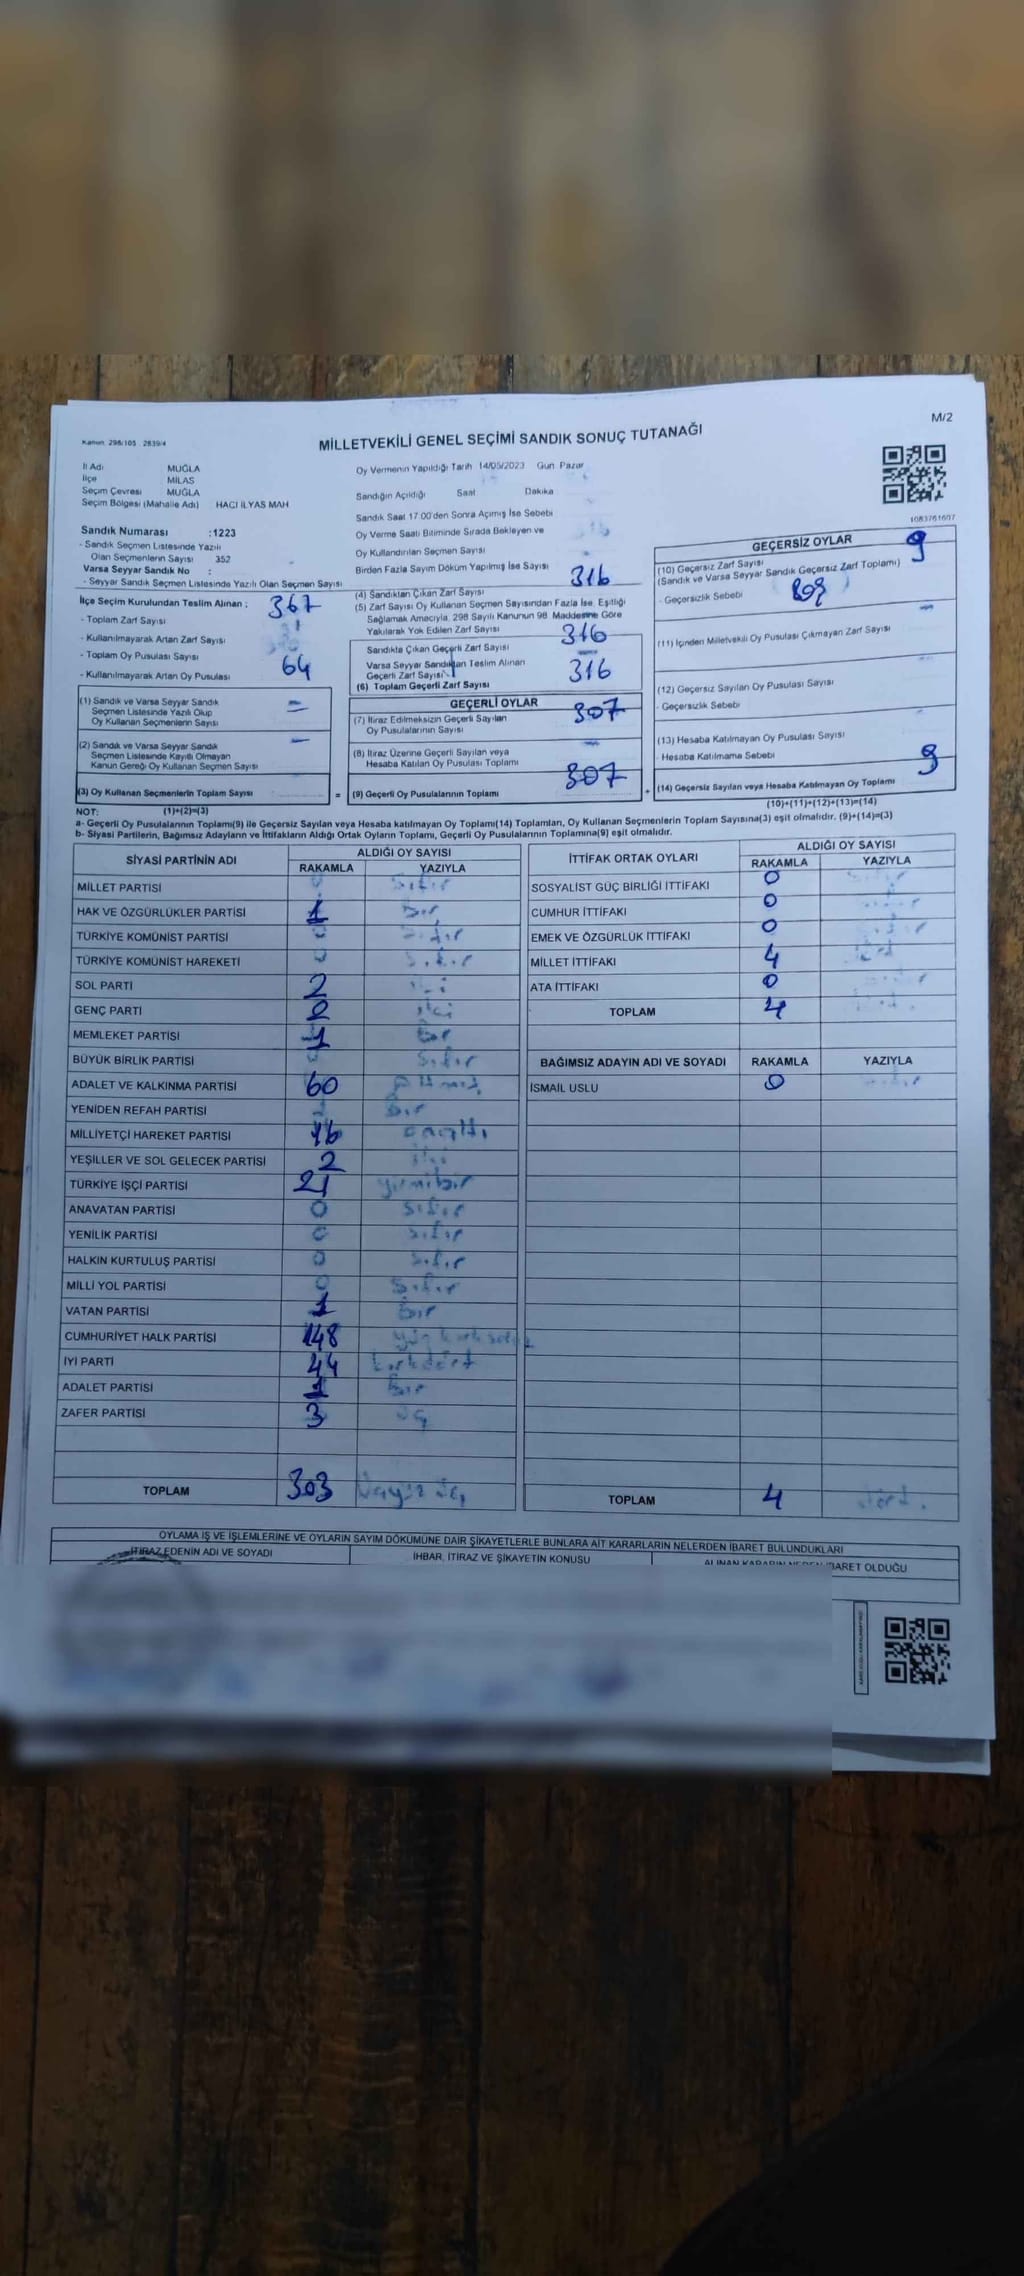 M/2
Kanun: 298/105 2839/4
MİLLETVEKİLİ GENEL SEÇİMİ SANDIK SONUÇ TUTANAĞI
İl Adı MUĞLA
İlçe MİLAS
Seçim Çevresi MUĞLA
Seçim Bölgesi (Mahalle Adı) HACI İLYAS MAH
Sandık Numarası :1223
- Sandık Seçmen Listesinde Yazılı
Olan Seçmenlerin Sayısı 352
Varsa Seyyar Sandık No :
- Seyyar Sandık Seçmen Listesinde Yazılı Olan Seçmen Sayısı
İlçe Seçim Kurulundan Teslim Alınan :
- Toplam Zarf Sayısı 367
- Kullanılmayarak Artan Zarf Sayısı
- Toplam Oy Pusulası Sayısı
- Kullanılmayarak Artan Oy Pusulası 64
(1) Sandık ve Varsa Seyyar Sandık
Seçmen Listesinde Yazılı Olup
Oy Kullanan Seçmenlerin Sayısı
(2) Sandık ve Varsa Seyyar Sandık
Seçmen Listesinde Kayıtlı Olmayan
Kanun Gereği Oy Kullanan Seçmen Sayısı
(3) Oy Kullanan Seçmenlerin Toplam Sayısı =
Oy Vermenin Yapıldığı Tarih 14/05/2023 Gün Pazar
Sandığın Açıldığı Saat Dakika
Sandık Saat 17:00'den Sonra Açılmış İse Sebebi
Oy Verme Saati Bitiminde Sırada Bekleyen ve
Oy Kullandırılan Seçmen Sayısı
Birden Fazla Sayım Döküm Yapılmış İse Sayısı
(4) Sandıktan Çıkan Zarf Sayısı 316
(5) Zarf Sayısı Oy Kullanan Seçmen Sayısından Fazla İse, Eşitliği
Sağlamak Amacıyla, 298 Sayılı Kanunun 98. Maddesine Göre
Yakılarak Yok Edilen Zarf Sayısı
Sandıkta Çıkan Geçerli Zarf Sayısı 316
Varsa Seyyar Sandıktan Teslim Alınan
Geçerli Zarf Sayısı
(6) Toplam Geçerli Zarf Sayısı 316
GEÇERLİ OYLAR
(7) İtiraz Edilmeksizin Geçerli Sayılan
Oy Pusulalarının Sayısı 307
(8) İtiraz Üzerine Geçerli Sayılan veya
Hesaba Katılan Oy Pusulası Toplamı
(9) Geçerli Oy Pusulalarının Toplamı 307 +
1083761607
GEÇERSİZ OYLAR
(10) Geçersiz Zarf Sayısı 9
(Sandık ve Varsa Seyyar Sandık Geçersiz Zarf Toplamı)
- Geçersizlik Sebebi
(11) İçinden Milletvekili Oy Pusulası Çıkmayan Zarf Sayısı
(12) Geçersiz Sayılan Oy Pusulası Sayısı
- Geçersizlik Sebebi
(13) Hesaba Katılmayan Oy Pusulası Sayısı
- Hesaba Katılmama Sebebi
(14) Geçersiz Sayılan veya Hesaba Katılmayan Oy Toplamı 9
(10)+(11)+(12)+(13)=(14)
NOT: (1)+(2)=(3)
a- Geçerli Oy Pusulalarının Toplamı(9) ile Geçersiz Sayılan veya Hesaba katılmayan Oy Toplamı(14) Toplamları, Oy Kullanan Seçmenlerin Toplam Sayısına(3) eşit olmalıdır. (9)+(14)=(3)
b- Siyasi Partilerin, Bağımsız Adayların ve İttifakların Aldığı Ortak Oyların Toplamı, Geçerli Oy Pusulalarının Toplamına(9) eşit olmalıdır.
SİYASİ PARTİNİN ADI ALDIĞI OY SAYISI
RAKAMLA YAZIYLA
MİLLET PARTİSİ 0 Sıfır
HAK VE ÖZGÜRLÜKLER PARTİSİ 1 Bir
TÜRKİYE KOMÜNİST PARTİSİ 0 Sıfır
TÜRKİYE KOMÜNİST HAREKETİ 0 Sıfır
SOL PARTİ 2 iki
GENÇ PARTİ 2 iki
MEMLEKET PARTİSİ 1 Bir
BÜYÜK BİRLİK PARTİSİ Sıfır
ADALET VE KALKINMA PARTİSİ 60 Altmış
YENİDEN REFAH PARTİSİ Bir
MİLLİYETÇİ HAREKET PARTİSİ 16 onaltı
YEŞİLLER VE SOL GELECEK PARTİSİ 2 iki
TÜRKİYE İŞÇİ PARTİSİ 21 yirmibir
ANAVATAN PARTİSİ 0 Sıfır
YENİLİK PARTİSİ 0 Sıfır
HALKIN KURTULUŞ PARTİSİ 0 Sıfır
MİLLİ YOL PARTİSİ 0 Sıfır
VATAN PARTİSİ 1 Bir
CUMHURİYET HALK PARTİSİ 148 yüz kırksekiz
İYİ PARTİ 44 kırkdört
ADALET PARTİSİ 1 Bir
ZAFER PARTİSİ 3 üç
TOPLAM 303
İTTİFAK ORTAK OYLARI ALDIĞI OY SAYISI
RAKAMLA YAZIYLA
SOSYALİST GÜÇ BİRLİĞİ İTTİFAKI 0
CUMHUR İTTİFAKI 0
EMEK VE ÖZGÜRLÜK İTTİFAKI 0
MİLLET İTTİFAKI 4
ATA İTTİFAKI 0
TOPLAM 4
BAĞIMSIZ ADAYIN ADI VE SOYADI RAKAMLA YAZIYLA
İSMAİL USLU 0
TOPLAM 4 dört
OYLAMA İŞ VE İŞLEMLERİNE VE OYLARIN SAYIM DÖKÜMÜNE DAİR ŞİKAYETLERLE BUNLARA AİT KARARLARIN NELERDEN İBARET BULUNDUKLARI
İTİRAZ EDENİN ADI VE SOYADI İHBAR, İTİRAZ VE ŞİKAYETİN KONUSU ALINAN KARARIN NEDEN İBARET OLDUĞU